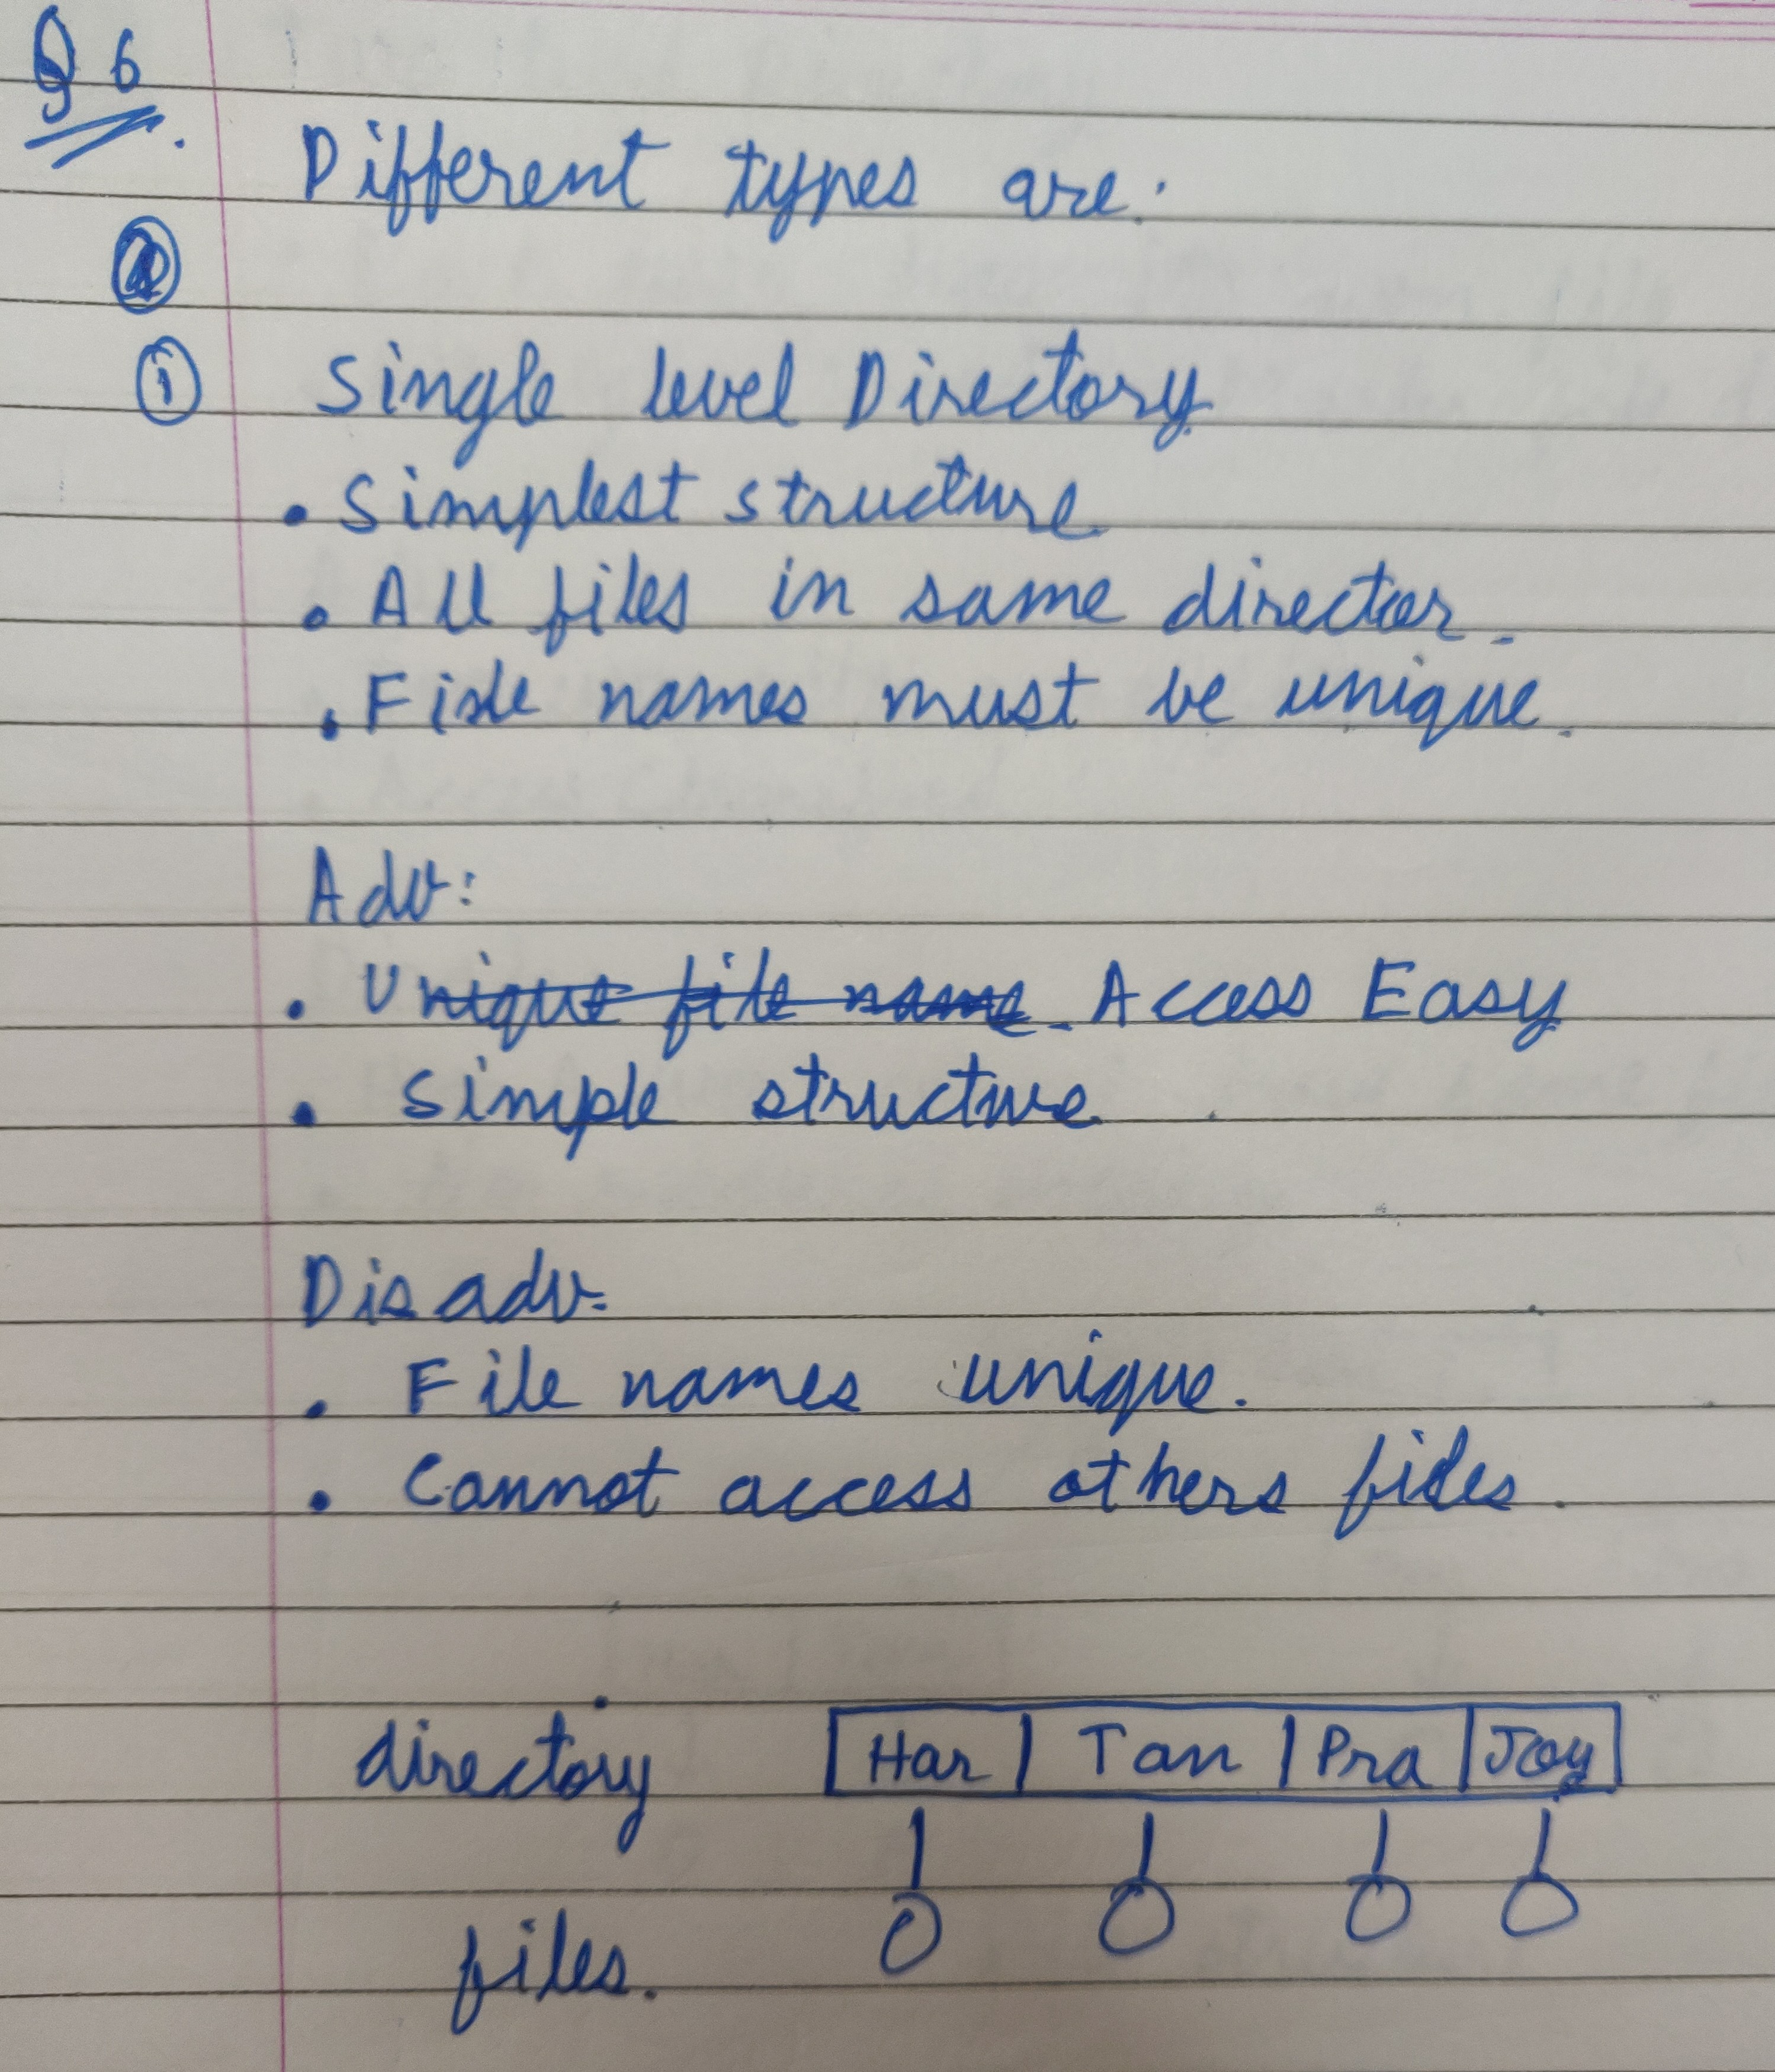 Q 6.
Different types are:
i Single level Directory
• Simplest structure
• All files in same director.
• File names must be unique.
Adv:
• Unique file name. Access Easy
• Simple structure
Disadv:
• File names unique.
• Cannot access others files.
directory Har Tan Pra Joy
files.